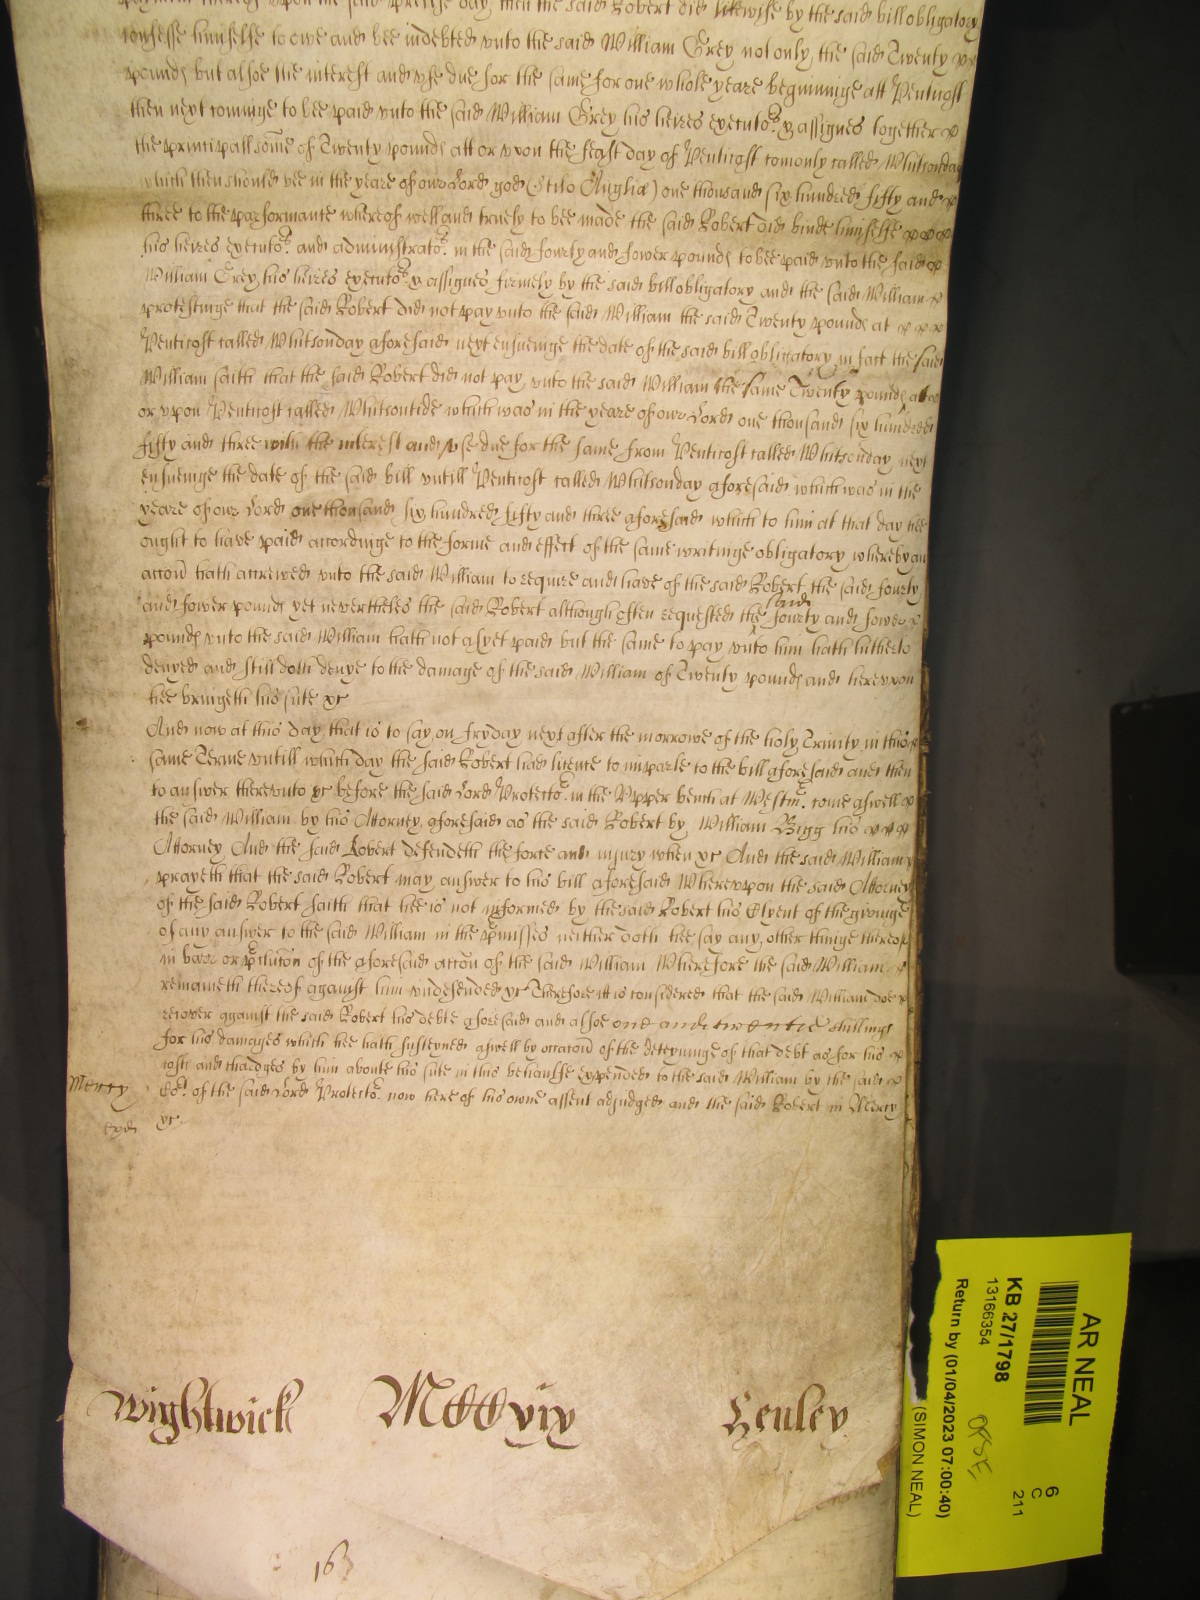 payment thereof upon the said precise day, then the said Robert did likewise by the said bill obligatory
confesse himselfe to owe and bee indebted unto the said William Grey not only the said Twenty
pounds but alsoe the interest and use due for the same for one whole yeare beginninge att Penticost
then next cominge to bee paid unto the said William Grey his heires executors & assignes together
the principall some of Twenty pounds att or upon the feast day of Penticost comonly called Whitsonday
which then should bee in the yeare of our Lord god (Stilo Angliæ) one thousand six hundred fifty and
three to the performance whereof well and truely to bee made the said Robert did binde himselfe
his heires executors and administrators in the said fourty and fower pounds to bee paid unto the said
William Grey his heires executors & assignes firmely by the said bill obligatory and the said William
protestinge that the said Robert did not pay unto the said William the said Twenty pounds at
Penticost called Whitsonday aforesaid next ensueinge the date of the said bill obligatory in fact the said
William saith that the said Robert did not pay unto the said William the same Twenty pounds att
or upon Penticost called Whitsontide which was in the yeare of our Lord one thousand six hundred
fifty and three with the interest and use due for the same from Penticost called Whitsonday next
ensueinge the date of the said bill untill Penticost called Whitsonday aforesaid which was in the
yeare of our Lord one thousand six hundred fifty and three aforesaid which to him at that day hee
ought to have paid accordinge to the forme and effect of the same writinge obligatory whereby an
accon hath accrewed unto the said William to require and have of the said Robert the said fourty
and fower pounds yet nevertheles the said Robert although often requested the said fourty and fower
pounds unto the said William hath not as yet paid but the same to pay unto him hath hitherto
denyed and still doth denye to the damage of the said William of Twenty pounds and hereupon
hee bringeth his sute &c
And now at this day that is to say on fryday next after the morrowe of the holy Trinity in this
same Terme untill which day the said Robert had licence to imparle to the bill aforesaid and then
to answer thereunto &c before the said Lord Protector in the Upper bench at Westm. come aswell
the said William by his Attorney aforesaid as the said Robert by William Bigg his
Attorney And the said Robert defendeth the force and injury when &c And the said William
prayeth that the said Robert may answer to his bill aforesaid Whereupon the said Attorney
of the said Robert saith that hee is not informed by the said Robert his Clyent of the giveinge
of any answer to the said William in the pmisses neither doth hee say any other thinge thereof
in barr or pclusion of the aforesaid accon of the said William Wherefore the said William
remaineth thereof against him undefended &c Therefore it is considered that the said William doe
recover against the said Robert his debte aforesaid and alsoe one and twentie shillings
for his damages which hee hath susteyned aswell by occacon of the deteyninge of that debt as for his
costs and chardges by him aboute his sute in this behaulfe expended to the said William by the said
Cot. of the said Lord Protector now here of his owne assent adjudged and the said Robert in Mercy
Mercy
&c
Wightwick
Henley
163
AR NEAL
KB 27/1798
13166354
Return by (01/04/2023 07:00:40)
(SIMON NEAL)
6
C
211